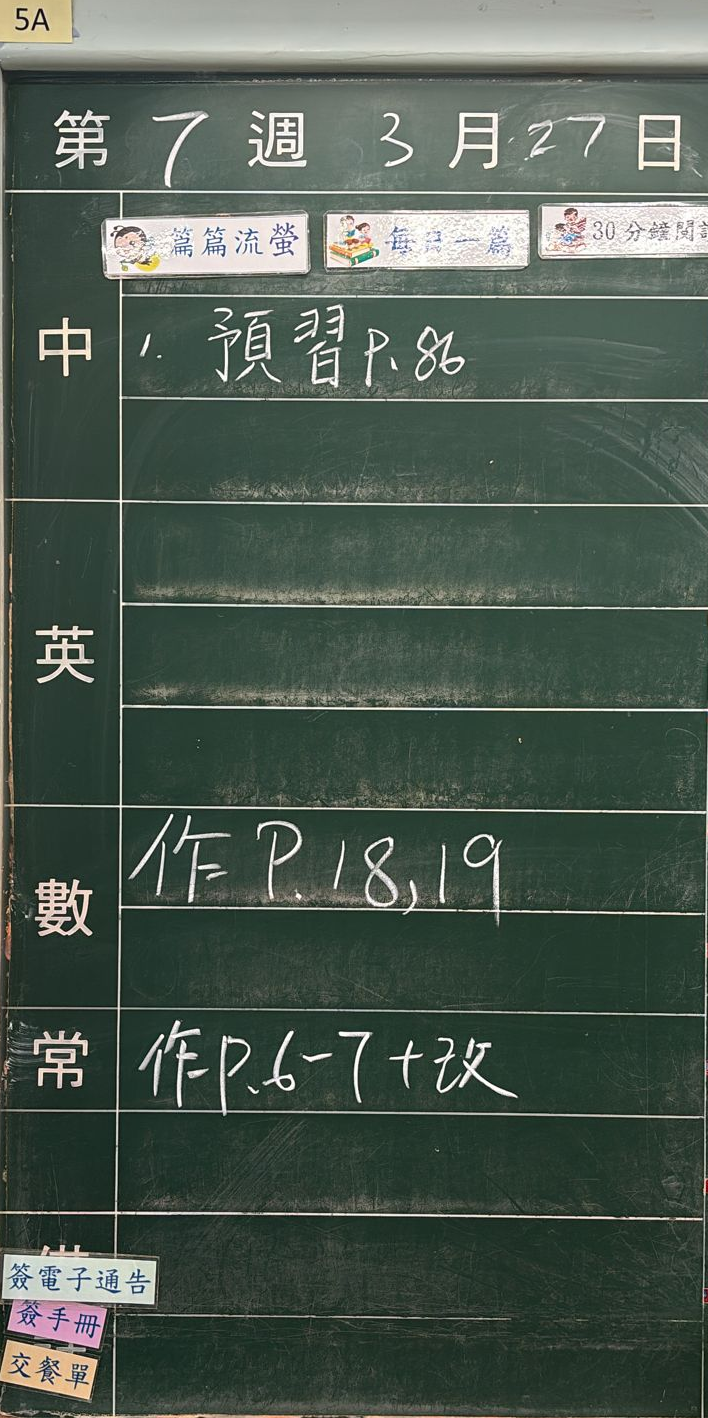 5A
第 7 週 3 月 27 日
篇篇流螢 每日一篇 30分鐘閱
中 1. 預習 P. 86
英
數 作 P. 18, 19
常 作 P. 6-7 + 改
簽電子通告
簽手冊
交餐單